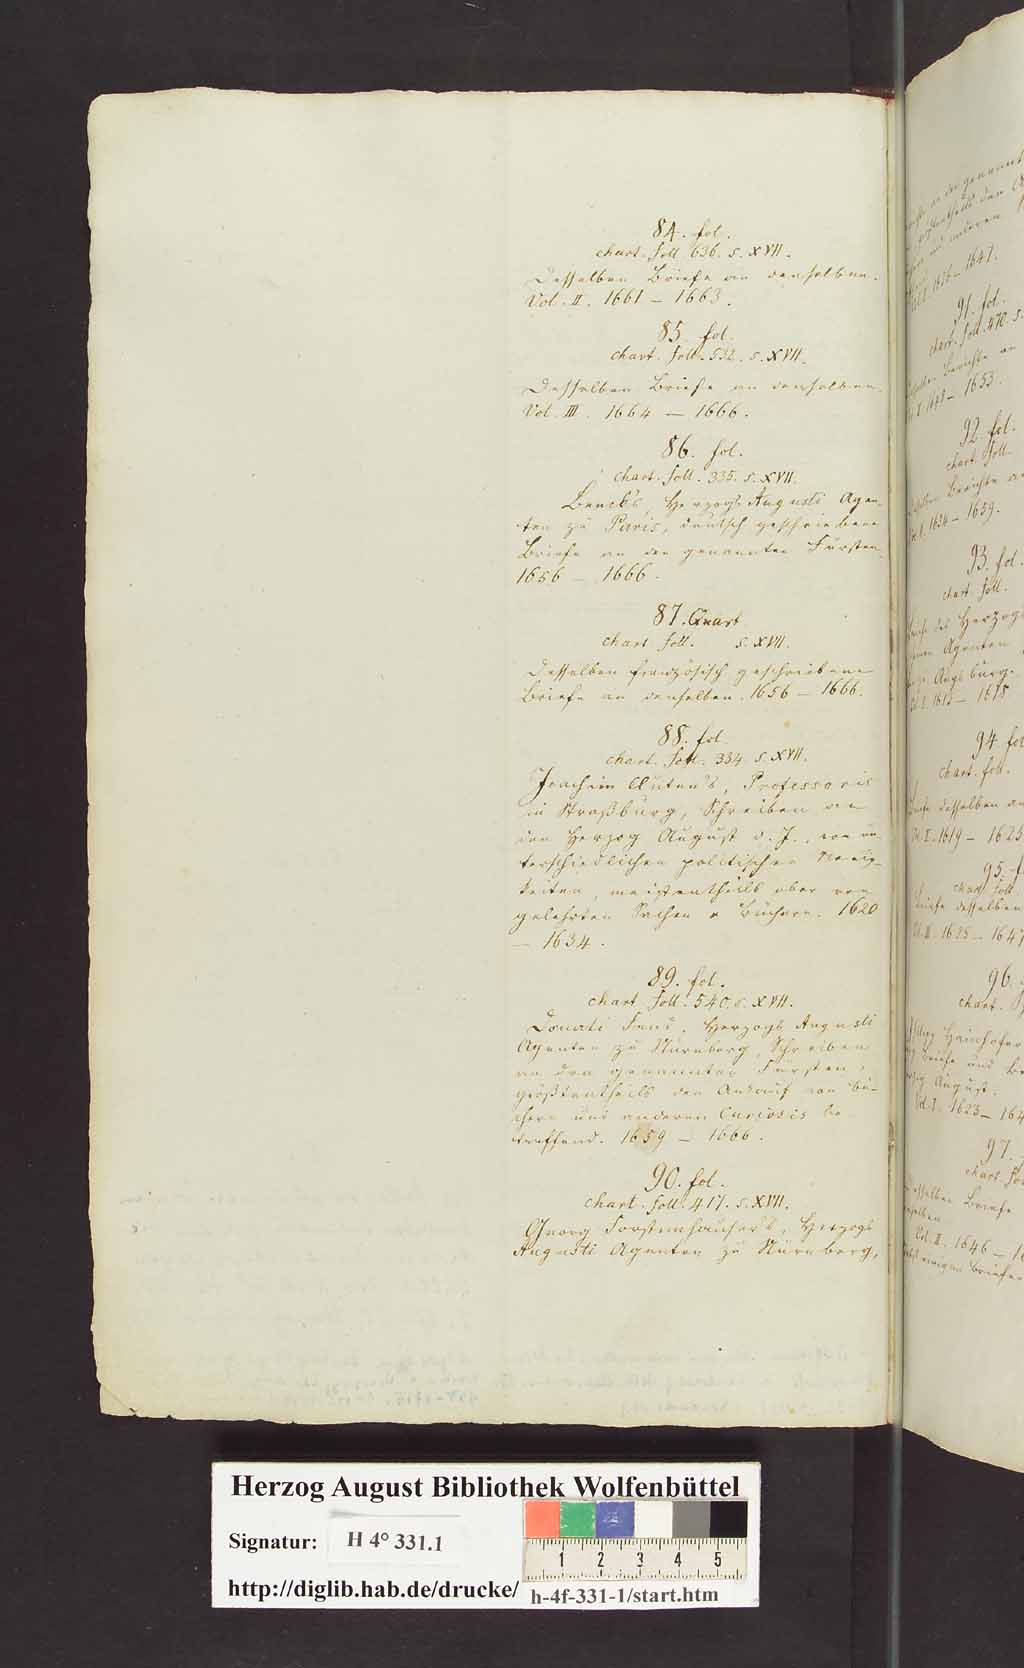 84. fol.
chart. foll. 636. s. XVII.
Desselben Briefe an denselben.
Vol. II. 1661 – 1663.
85. fol.
chart. foll. 532. s. XVII.
Desselben Briefe an denselben.
Vol. III. 1664 – 1666.
86. fol.
chart. foll. 335. s. XVII.
Beneks, Herzogs Augusti Agen-
ten zu Paris, deutsch geschriebene
Briefe an den genannten Fürsten.
1656 – 1666.
87. Quart
chart foll. s. XVII.
Desselben französisch geschriebene
Briefe an denselben. 1656 – 1666.
88. fol.
chart. foll. 334. s. XVII.
Joachim Cluten's, Professoris
in Straßburg, Schreiben an
den Herzog August d. J., von un-
terschiedlichen politischen Neuig-
keiten, meistentheils aber von
gelehrten Sachen u Büchern. 1620
– 1634.
89. fol.
chart. foll. 540. s. XVII.
Donati Fend, Herzogs Augusti
Agenten zu Nürnberg, Schreiben
an den genannten Fürsten,
größtentheils den Ankauf von Bü-
chern und anderen Curiosis be-
treffend. 1659 – 1666.
90. fol.
chart. foll. 417. s. XVII.
Georg Forstenhäuser's, Herzogs
Augusti Agenten zu Nürnberg,
1636 – 1647.
91. fol.
chart. foll. 470. s.
Berichte an
– 1653.
92. fol.
chart. foll.
Berichte an
1654 – 1659.
93. fol.
chart. foll.
des Herzogs
Agenten
Augsburg.
1613 – 1615
94. fol
chart. foll.
desselben an
Vol. I. 1619 – 1625
95.
chart. foll
Briefe desselben
Vol. II. 1625 – 1647
96.
chart.
Philipp Hainhofer
Briefe und
August.
Vol. I. 1623 – 164
97.
chart. fo
Desselben Briefe
Vol. II. 1646 –
Briefen
Herzog August Bibliothek Wolfenbüttel
Signatur: H 4° 331.1
1 2 3 4 5
http://diglib.hab.de/drucke/ h-4f-331-1/start.htm